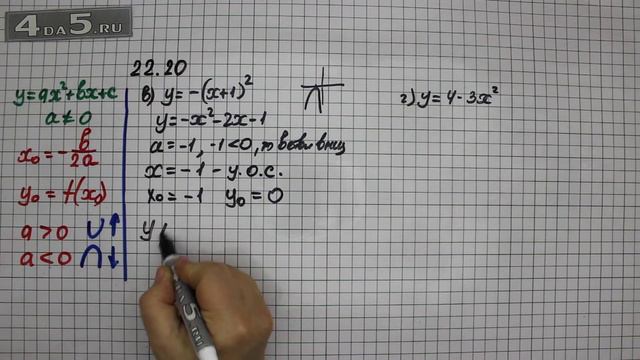 4DA5.RU
22.20
y=ax²+bx+c
a≠0
x₀=-b/2a
y₀=f(x₀)
a>0 ∪↑
a<0 ∩↓
в) y=-(x+1)²
y=-x²-2x-1
a=-1, -1<0, то ветви вниз
x=-1 - у.о.с.
x₀=-1 y₀=0
y
г) y=4-3x²
4DA5.RU